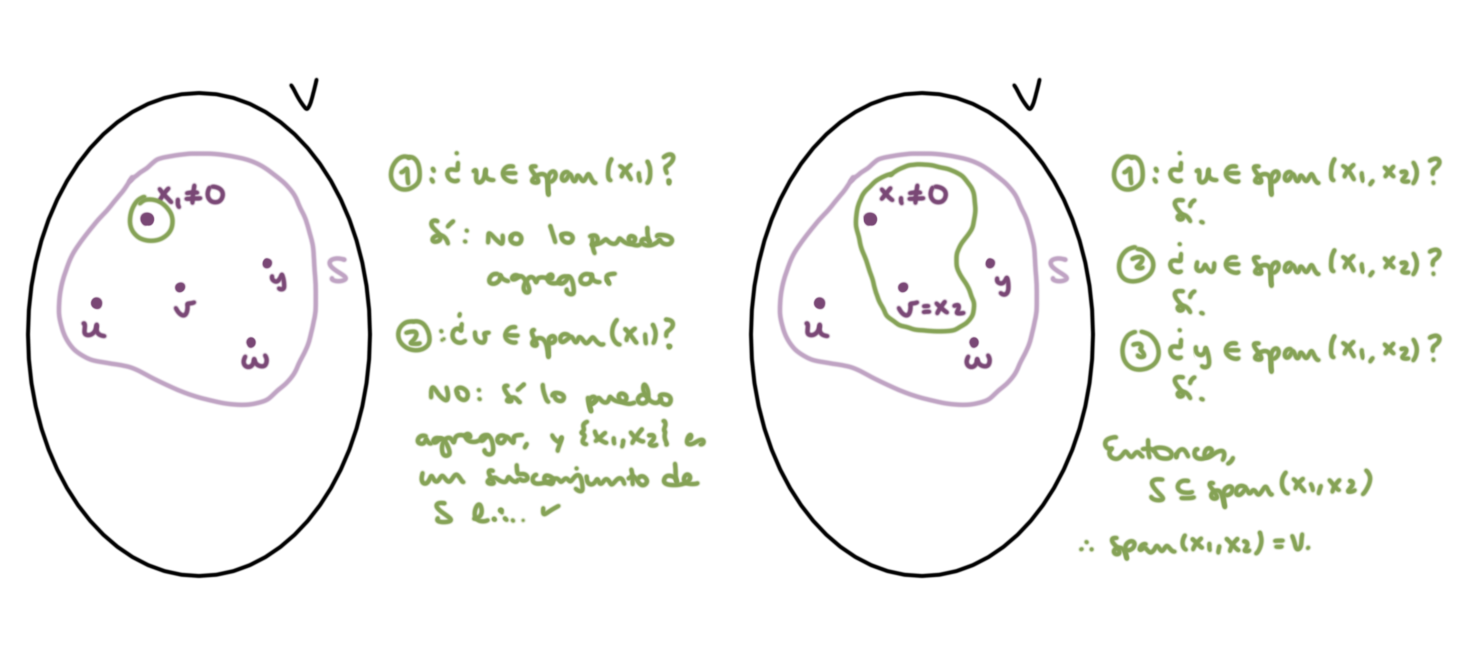 V
x₁≠0
u
v
y
w
S
①: ¿u ∈ span(x₁)?
Sí: NO lo puedo
agregar
②: ¿v ∈ span(x₁)?
NO: Sí lo puedo
agregar, y {x₁,x₂} es
un subconjunto de
S l.i.. ✓
V
x₁≠0
u
v=x₂
y
w
S
①: ¿u ∈ span(x₁,x₂)?
Sí.
② ¿w ∈ span(x₁,x₂)?
Sí.
③ ¿y ∈ span(x₁,x₂)?
Sí.
Entonces,
S ⊆ span(x₁,x₂)
∴ span(x₁,x₂) = V.